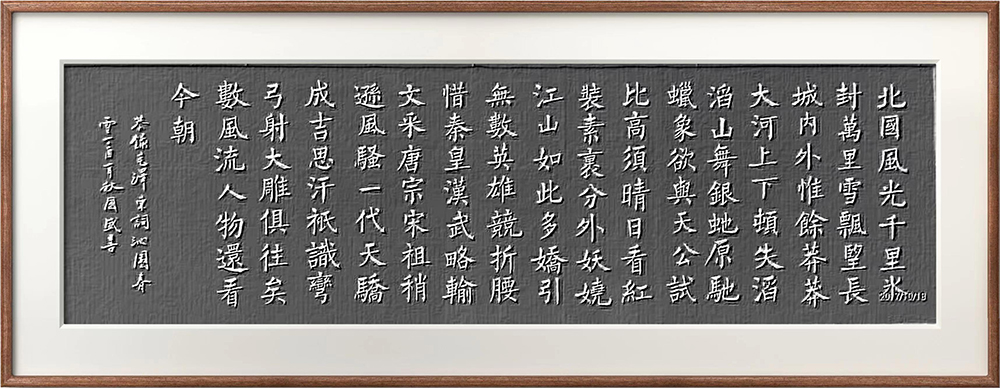 北國風光千里氷
封萬里雪飄望長
城内外惟餘莽莽
大河上下頓失滔
滔山舞銀虵原馳
蠟象欲與天公試
比高須晴日看紅
裝素裹分外妖嬈
江山如此多嬌引
無數英雄競折腰
惜秦皇漢武略輸
文采唐宗宋祖稍
遜風騷一代天驕
成吉思汗衹識彎
弓射大雕俱往矣
數風流人物還看
今朝
恭錄毛澤東詞沁園春
雪丁酉秋周盛
2017/10/18